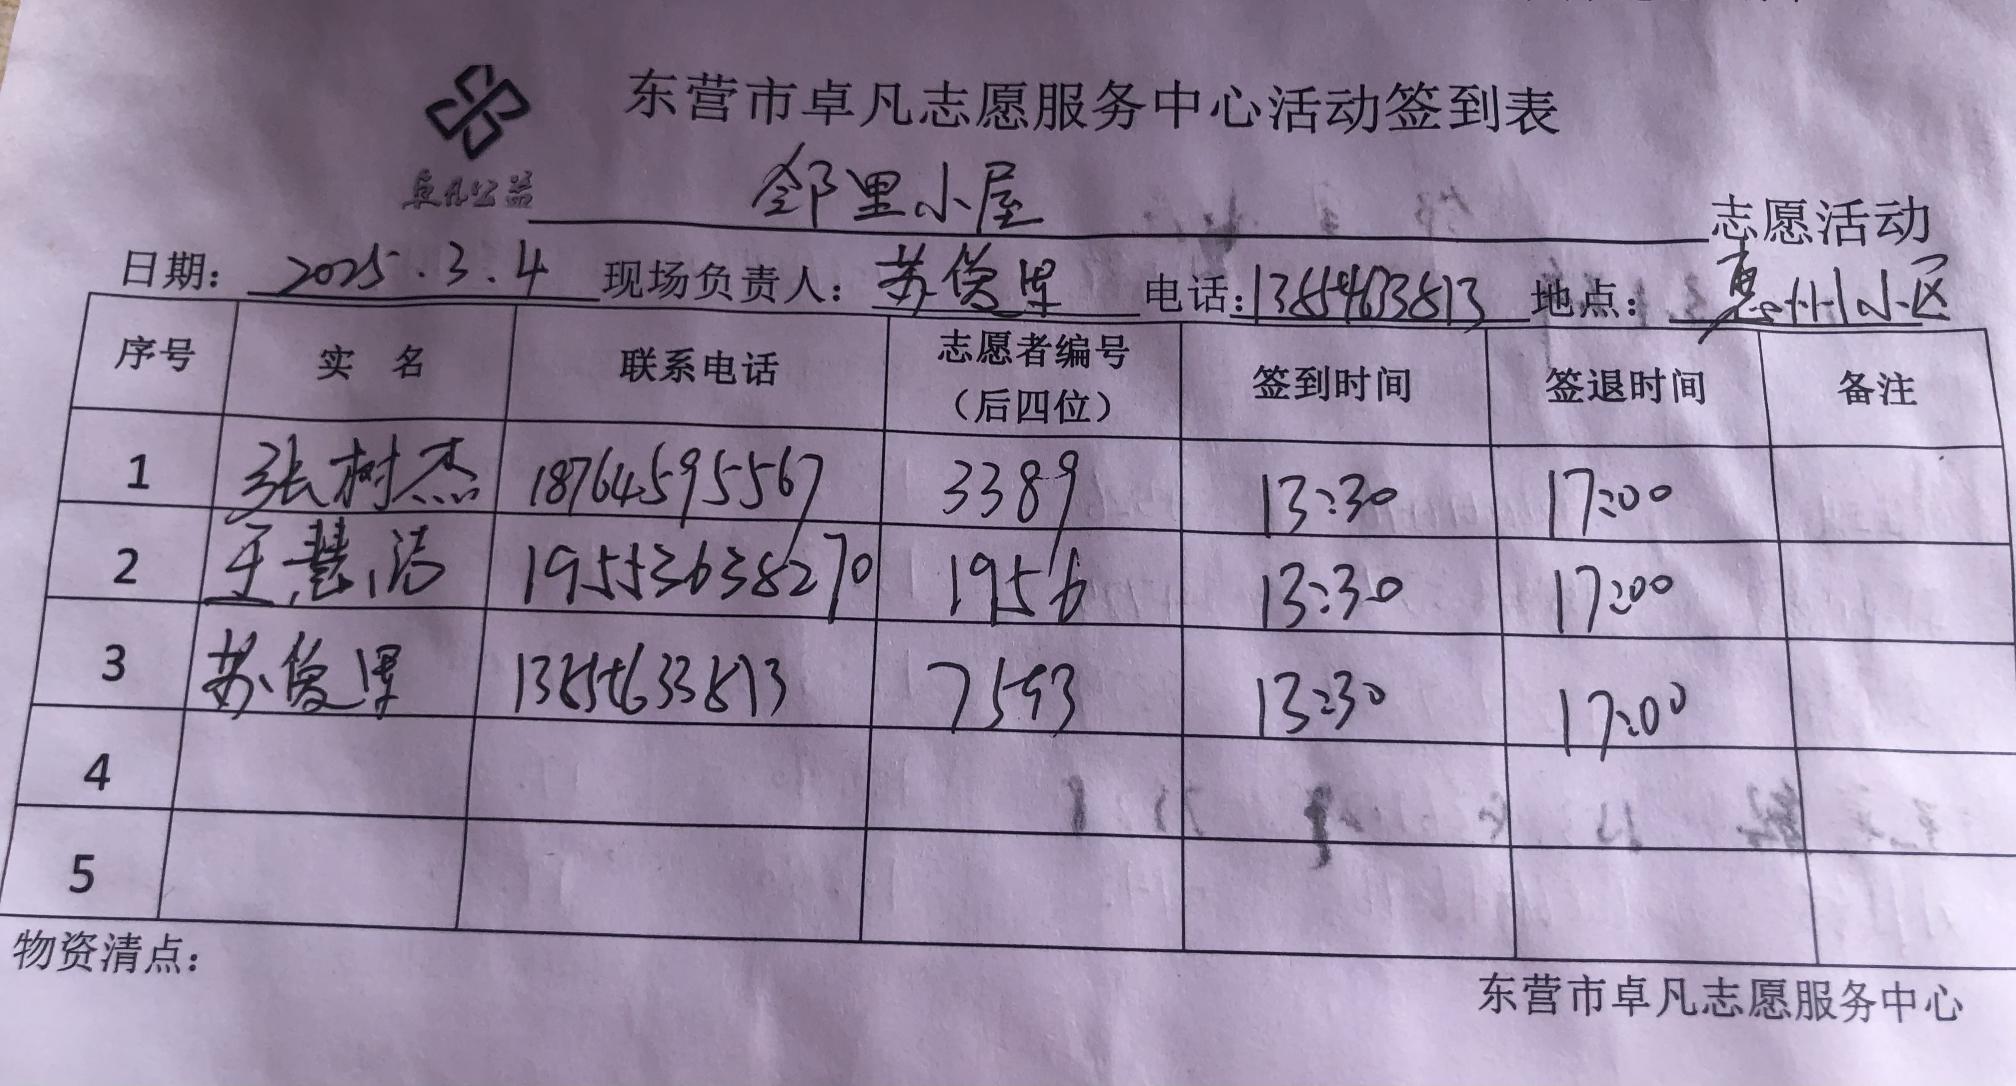 东营市卓凡志愿服务中心活动签到表
卓凡公益
邻里小屋 志愿活动
日期: 2025.3.4 现场负责人: 苏俊 电话: 13854633813 地点: 惠州小区
序号 实 名 联系电话 志愿者编号（后四位） 签到时间 签退时间 备注
1 张树杰 18764595567 3389 13:30 17:00
2 王慧洁 19553638270 1956 13:30 17:00
3 苏俊 13854633813 7593 13:30 17:00
4
5
物资清点:
东营市卓凡志愿服务中心